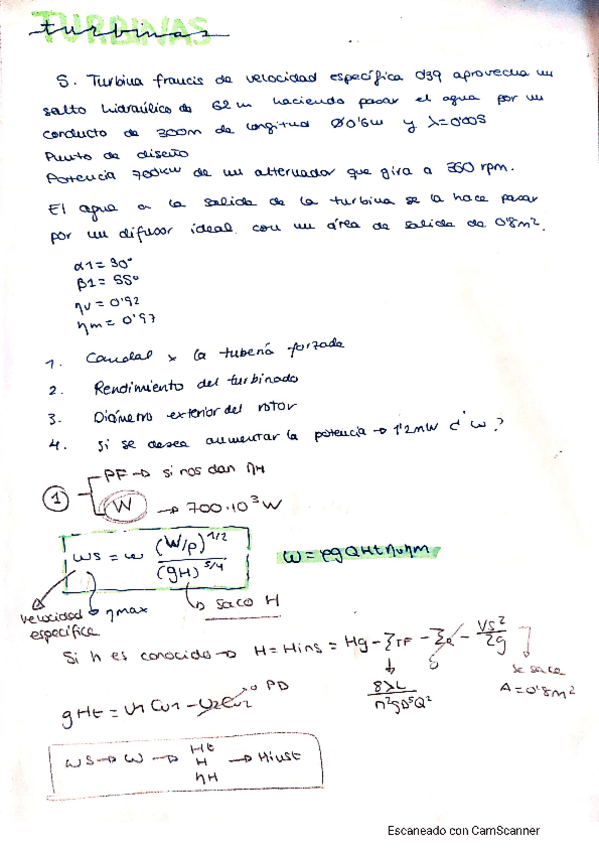 TURBINAS
turbinas
5. Turbina francis de velocidad específica 0'39 aprovecha un
salto hidraúlico de 62 m haciendo pasar el agua por un
conducto de 300m de longitud Ø0'6m y λ=0'005
Punto de diseño
Potencia 700kW de un alternador que gira a 360 rpm.
El agua a la salida de la turbina se la hace pasar
por un difusor ideal con un área de salida de 0'8m².
α1 = 30°
β1 = 55°
ηv = 0'92
ηm = 0'97
1. Caudal x la tubería forzada
2. Rendimiento del turbinado
3. Diámetro exterior del rotor
4. Si se desea aumentar la potencia → 1'2MW ¿ W?
① PF → si nos dan ηH
W → 700·10³ W
ws = w (W/ρ)^1/2 / (gH)^5/4
W = ρgQHtηvηm
velocidad específica
ηmax
saco H
Si h es conocido → H = Hins = Hg - ξTF - ξa - Vs²/2g
8λL / π²gD⁵Q²
0
se saca
A=0'8m²
gHt = U1 Cu1 - U2Cu2 → 0 PD
ws → W → Ht H ηH → Hinst
Escaneado con CamScanner